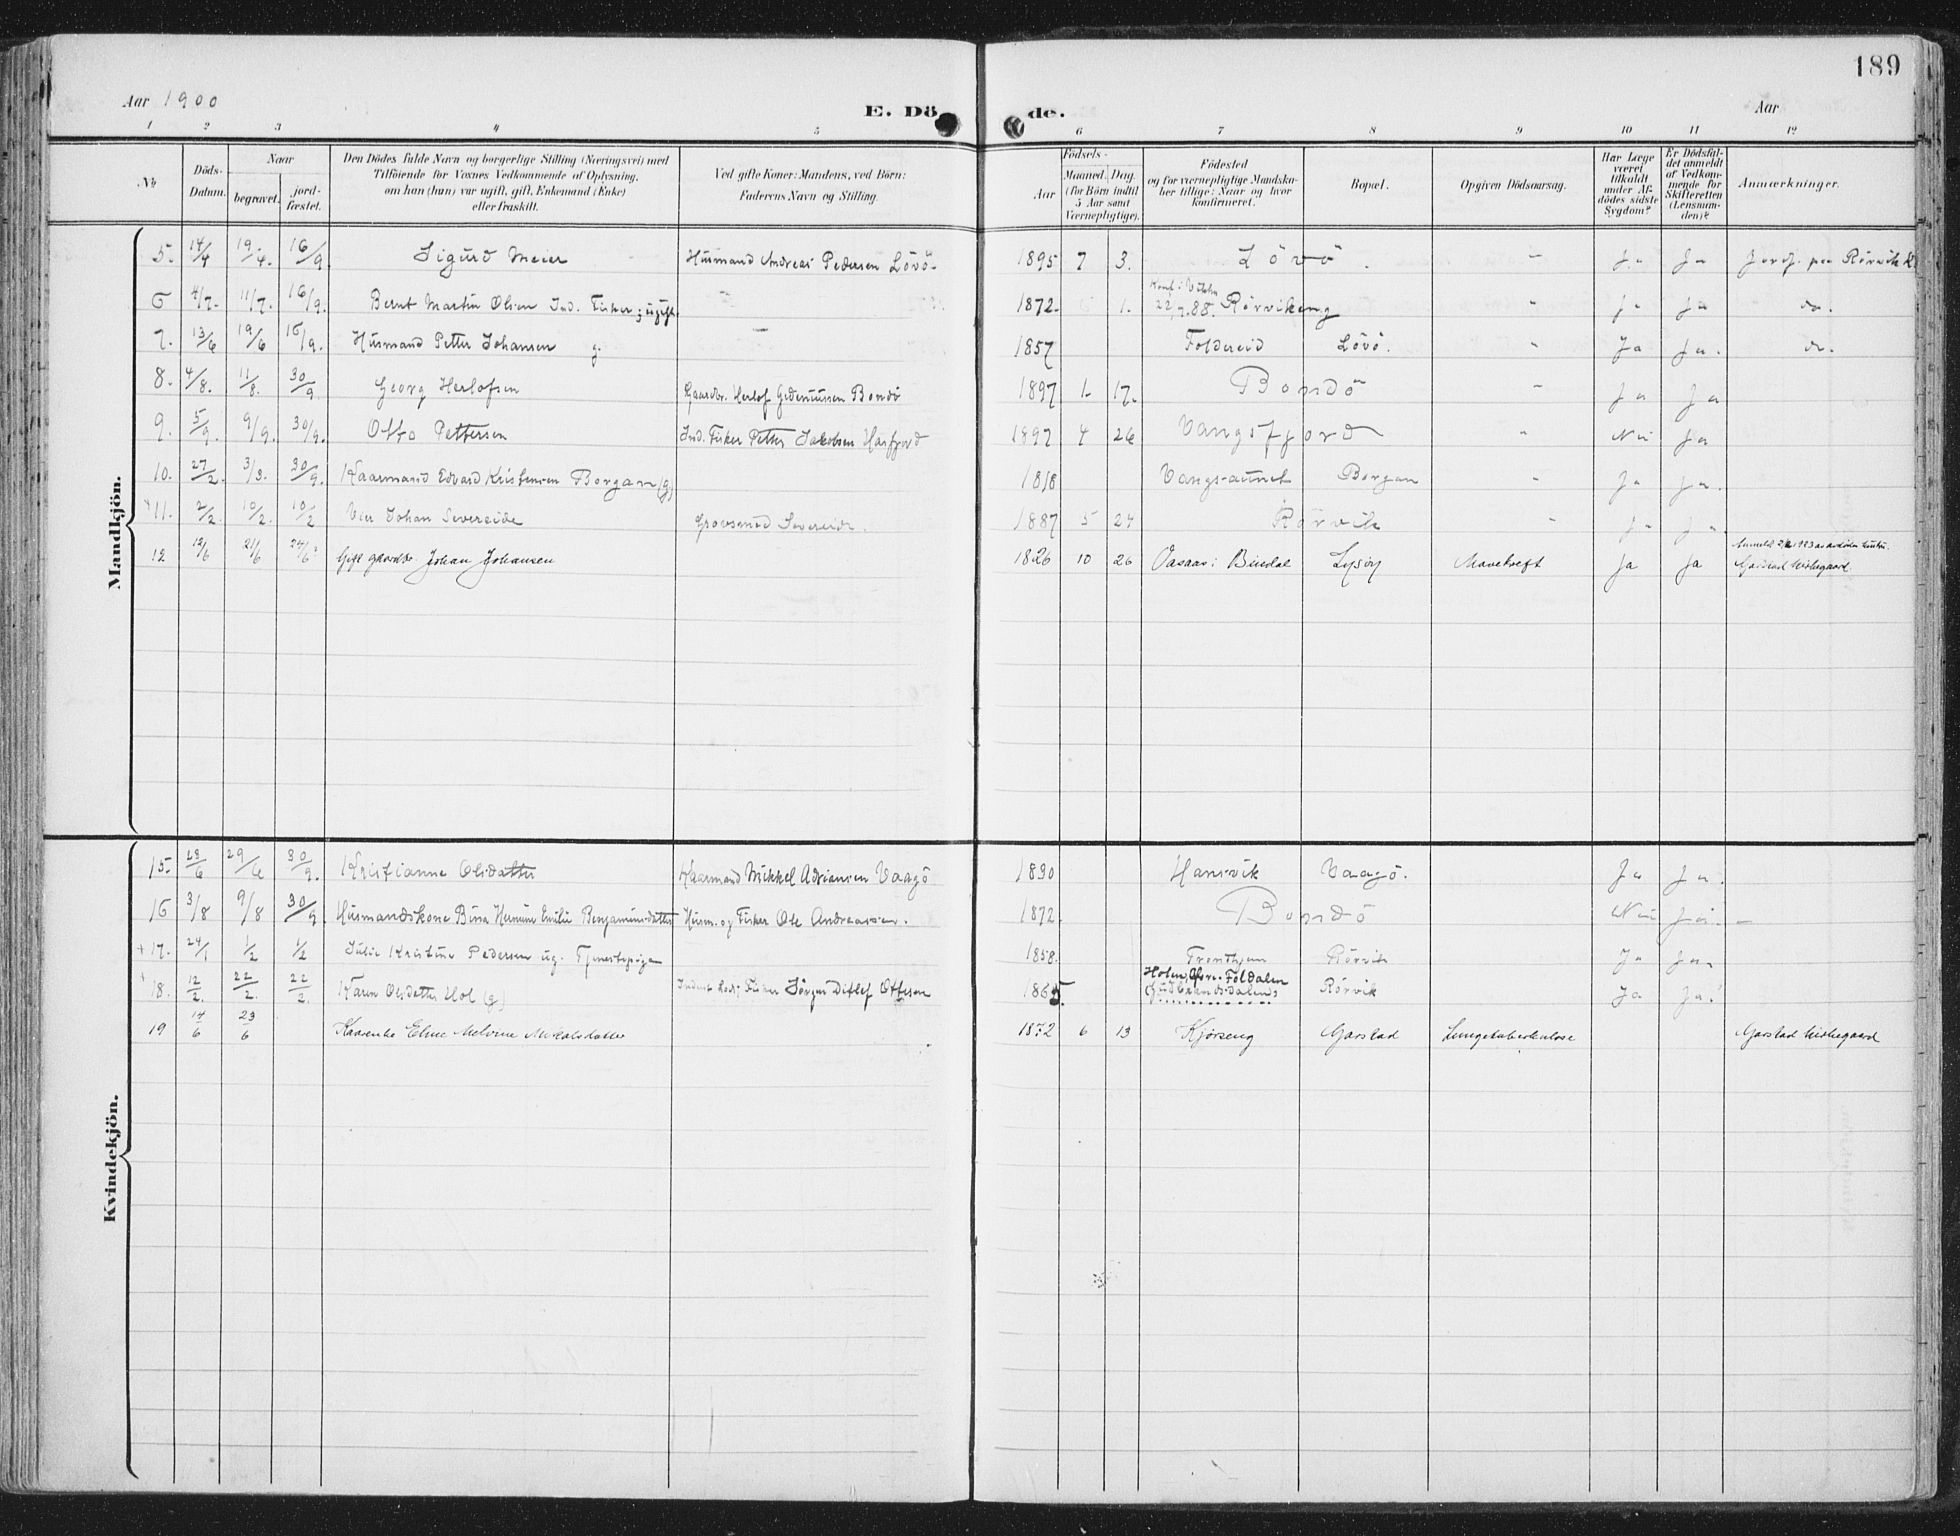 189
Aar 1900
E. Dö
de.
Aar
1 2 3 4 5 6 7 8 9 10 11 12
No
Döds-Datum.
Naar
begravet.
jord-fæstet.
Den Dödes fulde Navn og borgerlige Stilling (Næringsvei) med
Tilföiende for Voxnes Vedkommende af Oplysning,
om han (hun) var ugift, gift, Enkemand (Enke)
eller fraskilt.
Ved gifte Koner: Mandens, ved Börn:
Faderens Navn og Stilling.
Födsels-
Aar
Maaned. Dag.
(for Börn indtil
5 Aar samt
Værnepligtige).
Födested
og for værnepligtige Mandska-
ber tillige: Naar og hvor
konfirmeret.
Bopæl.
Opgiven Dödsaarsag.
Har Læge
været
tilkaldt
under Af-
dödes sidste
Sygdom?
Er Dödsfal-
det anmeldt
af Vedkom-
mende for
Skifteretten
(Lensman-
den)?
Anmærkninger.
Mandkjön.
5. 14/4 19/4. 16/9. Sigurd Meier Husmand Andreas Pedersen Lövö 1895 7 3. Lövö " Ja Ja Jordf. paa Rörvik K.
6 4/7. 11/7. 16/9. Bernt Martin Olsen Ind. Fisker; ugift. 1872. 1. 22/7.88. Rörvikeng " Ja Ja do.
7. 13/6 19/6 16/9. Husmand Petter Johansen g. 1857 Foldereid Lövö. " Ja Ja. do.
8. 4/8. 11/8. 30/9 Georg Herlofsen Gaardbr. Herlof Bondö 1897 1. 17. Bondö " Ja Ja
9. 5/9. 9/9. 30/9. Otto Pettersen Ind. Fisker Petter Jakobsen 1897 4 26 Vangsfjord " Nei Ja
10. 27/2. 3/3. 30/9. Kaarmand Edvard Kristensen Borgan (g) 1818 Vangsaunet Borgan " Ja Ja.
11. 2/2. 10/2. 10/2 Johan Severeide Severeide. 1887 5 27 Rörvik " Ja Ja.
12 12/6 21/6 24/6 Gift gaardbr. Johan Johansen 1826 10 26 Aasaas i Bindal Lysöy Mavekreft Ja Ja Garstad kirkegaard.
Kvindekjön.
15. 23/6 29/6 30/9. Kristianne Olsdatter Kaarmand Mikkel Adriansen Vaagö 1830 Hansvik Vaagö. Ja Ja.
16 3/8 9/8 30/9. Husmandskone Bina Hermine Emilie Benjaminsdatter Husm. og Fisker Ole Andreassen. 1872. Bondö Nei Ja. —
+17. 24/1 1/2 1/2 Julie Kristine Pedersen ug. Tjenestepige 1858. Trondhjem Rörvik Ja Ja.
18. 12/2. 22/2. 22/2. Karen Olsdatter Hol (g) Fisker Jörgen Ditlef Ottesen 1865. Holen, Övre Foldalen Gudbrandsdalens Rörvik Ja Ja.
19 14/6 23/6 Kaarenke Eline Melvine Mikalsdatter 1872 6 13 Kjörseng Garstad Lungetuberkulose Garstad kirkegaard